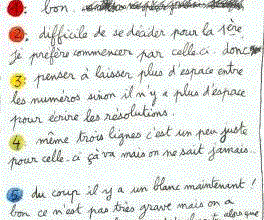 1. bon.
2. difficile de se décider pour la 1ère
je préfère commencer par celle-ci. donc
3. penser à laisser plus d'espace entre
les numéros sinon il n'y a plus d'espace
pour écrire les résolutions.
4. même trois lignes c'est un peu juste
pour celle-ci ça va mais on ne sait jamais..
5. du coup il y a un blanc maintenant!
bon ce n'est pas très grave mais on a